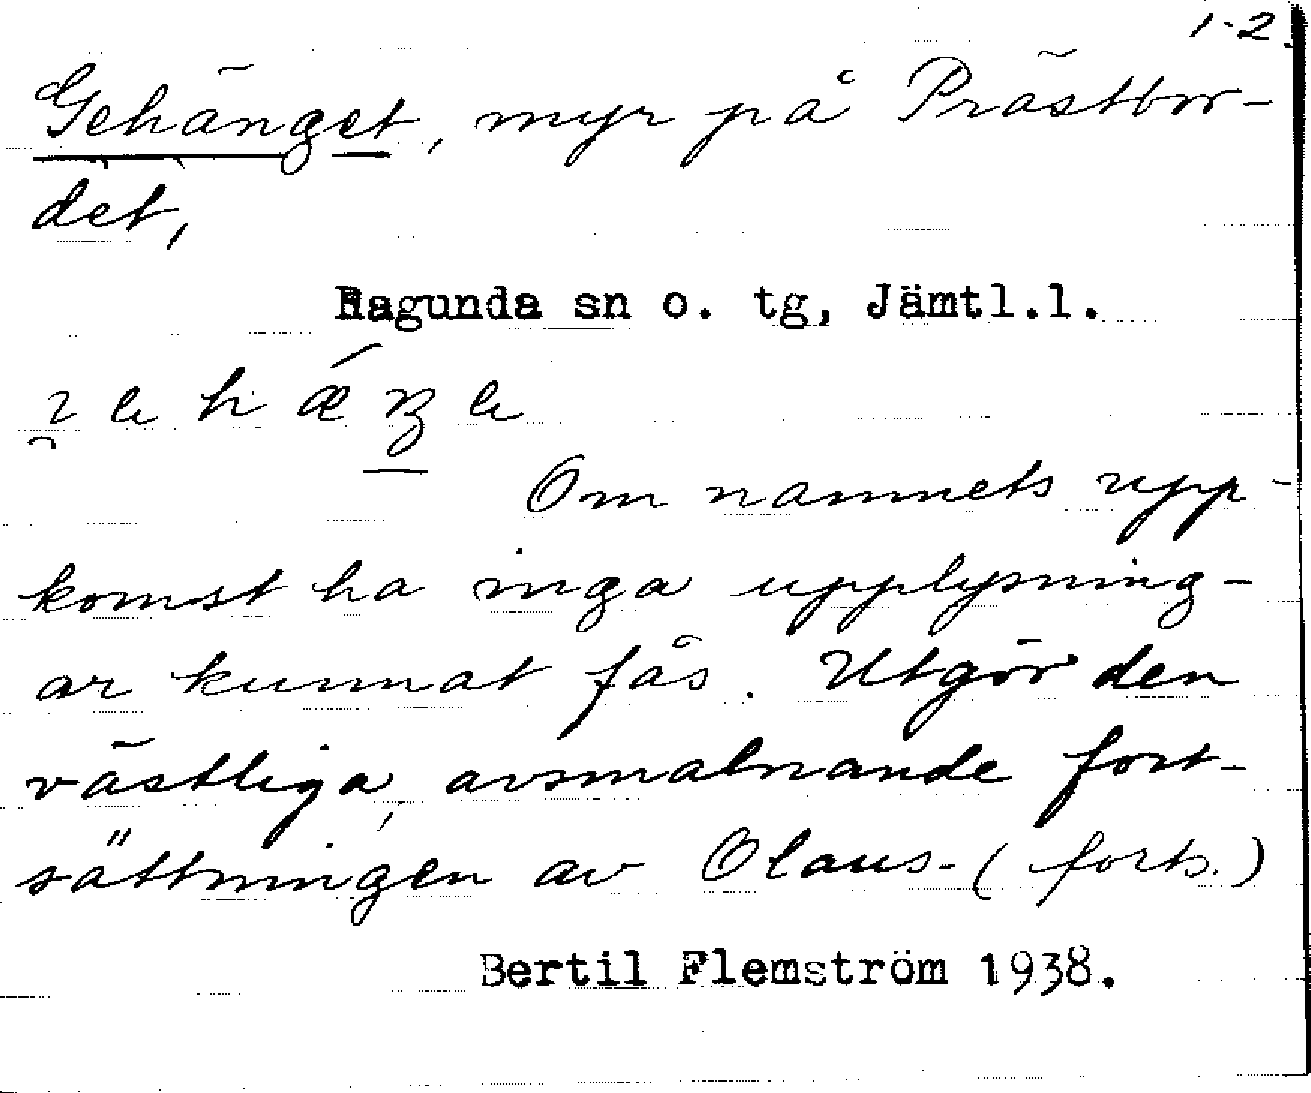 1-2.
Gehänget, myr på Prästbor-
det,
Ragunda sn o. tg, Jämtl.l.
Om namnets upp-
komst ha inga upplysning-
ar kunnat fås. Utgör den
västliga, avsmalnande fort-
sättningen av Olaus- (forts.)
Bertil Flemström 1938.